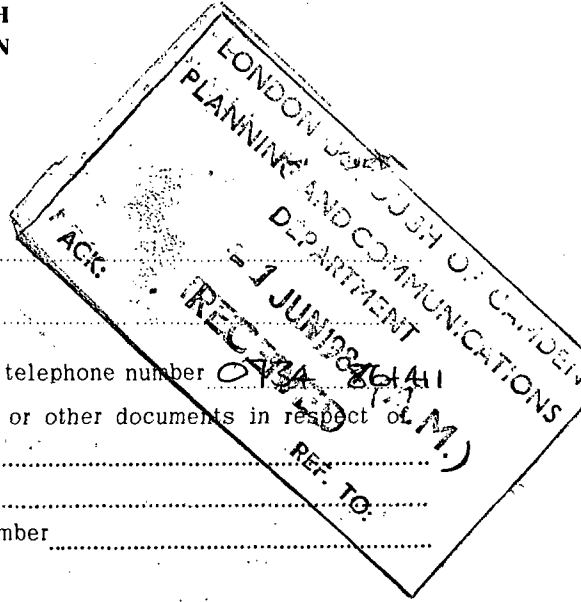 H
N
LONDON OF CAMDEN
PLANNING AND COMMUNICATIONS
DEPARTMENT
ACK:
1 JUN 198
(A.M.)
RECEIVED
REF. TO:
telephone number
or other documents in respect of
mber